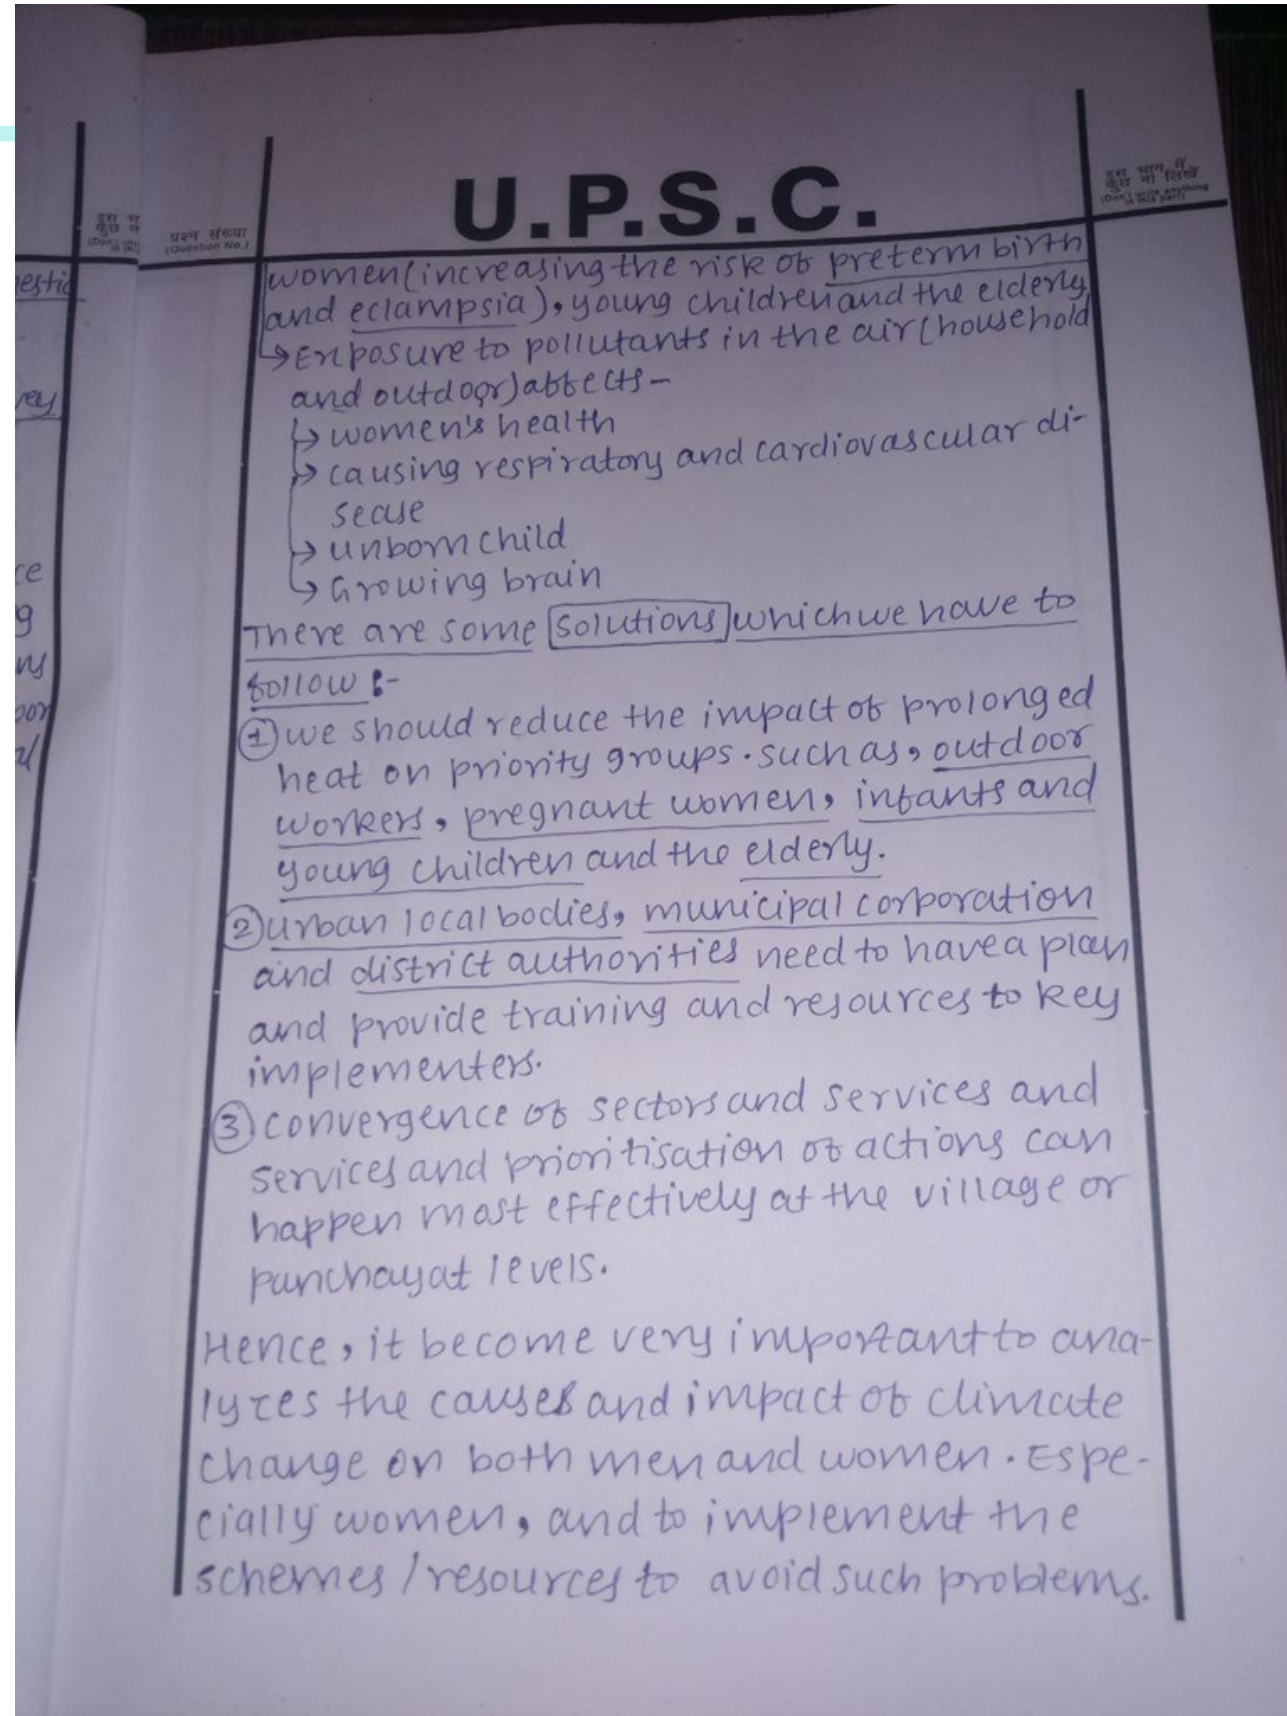 U.P.S.C.
प्रश्न संख्या
(Question No.)
इस भाग में
कुछ ना लिखें
(Don't write anything
in this part)
women(increasing the risk of preterm birth
and eclampsia), young children and the elderly
→ Exposure to pollutants in the air (household
and outdoor) affects-
→ women's health
→ causing respiratory and cardiovascular di-
sease
→ unborn child
→ Growing brain
There are some solutions which we have to
follow :-
① we should reduce the impact of prolonged
heat on priority groups. such as, outdoor
workers, pregnant women, infants and
young children and the elderly.
② urban local bodies, municipal corporation
and district authorities need to have a plan
and provide training and resources to key
implementers.
③ convergence of sectors and services and
services and prioritisation of actions can
happen most effectively at the village or
panchayat levels.
Hence, it become very important to ana-
lyzes the causes and impact of climate
change on both men and women. Espe-
cially women, and to implement the
schemes / resources to avoid such problems.